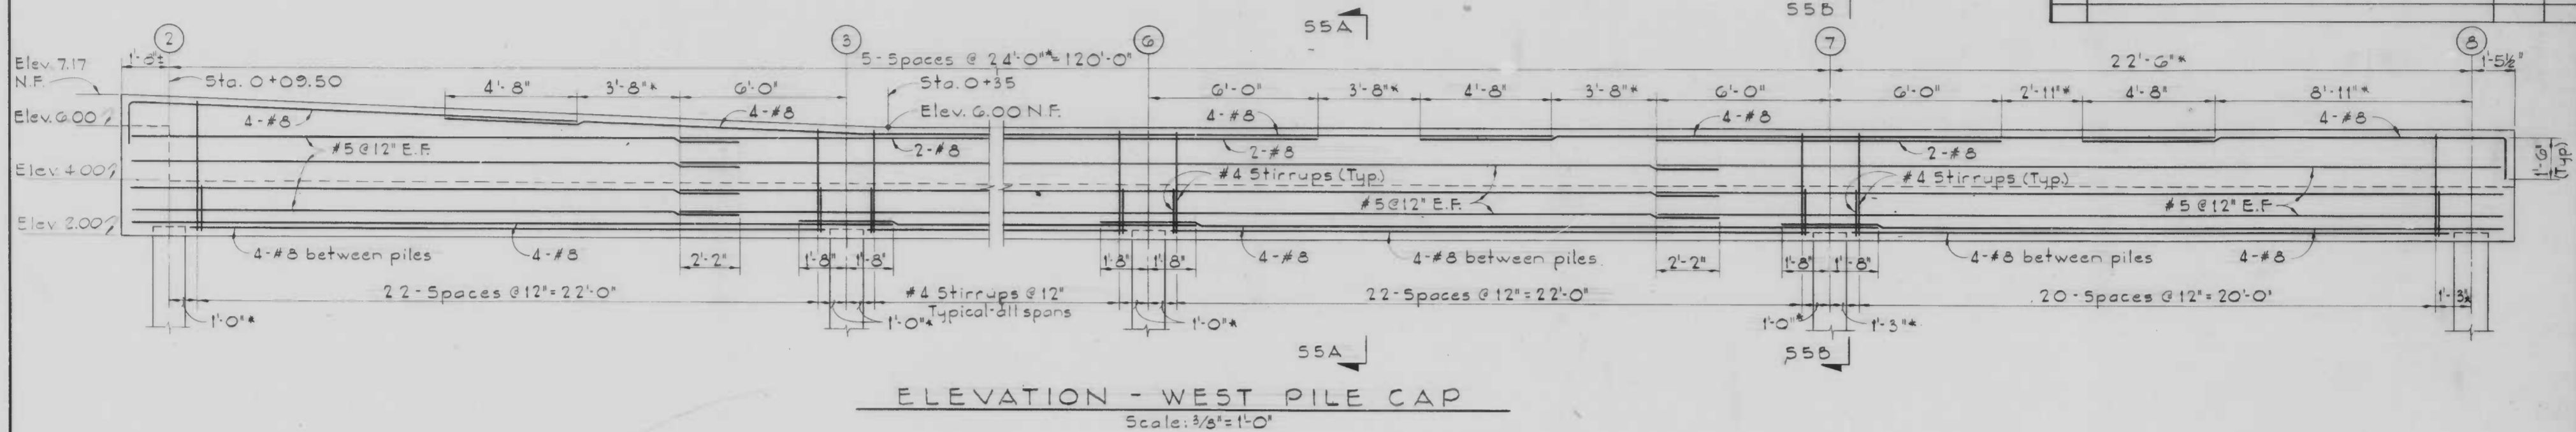 S5A
S5B
2
3
6
7
8
Elev. 7.17
N.F.
1'-8"±
5-Spaces @ 24'-0"* = 120'-0"
22'-6"*
1'-5½"
Sta. 0+09.50
4'-8"
3'-8"*
6'-0"
Sta. 0+35
6'-0"
3'-8"*
4'-8"
3'-8"*
6'-0"
6'-0"
2'-11"*
4'-8"
8'-11"*
Elev. 6.00
4-#8
4-#8
Elev. 6.00 N.F.
4-#8
4-#8
4-#8
#5 @ 12" E.F.
2-#8
2-#8
2-#8
1'-6"
(Typ)
Elev. 4.00
#4 Stirrups (Typ.)
#4 Stirrups (Typ.)
#5 @ 12" E.F.
#5 @ 12" E.F.
Elev. 2.00
4-#8 between piles
4-#8
2'-2"
1'-8"
1'-8"
1'-8"
1'-8"
4-#8
4-#8 between piles
2'-2"
1'-8"
1'-8"
4-#8 between piles
4-#8
22-Spaces @ 12" = 22'-0"
#4 Stirrups @ 12"
Typical-all spans
22-Spaces @ 12" = 22'-0"
20-Spaces @ 12" = 20'-0"
1'-3"*
1'-0"*
1'-0"*
1'-0"*
1'-0"*
1'-3"*
S5A
S5B
ELEVATION - WEST PILE CAP
Scale: 3/8" = 1'-0"